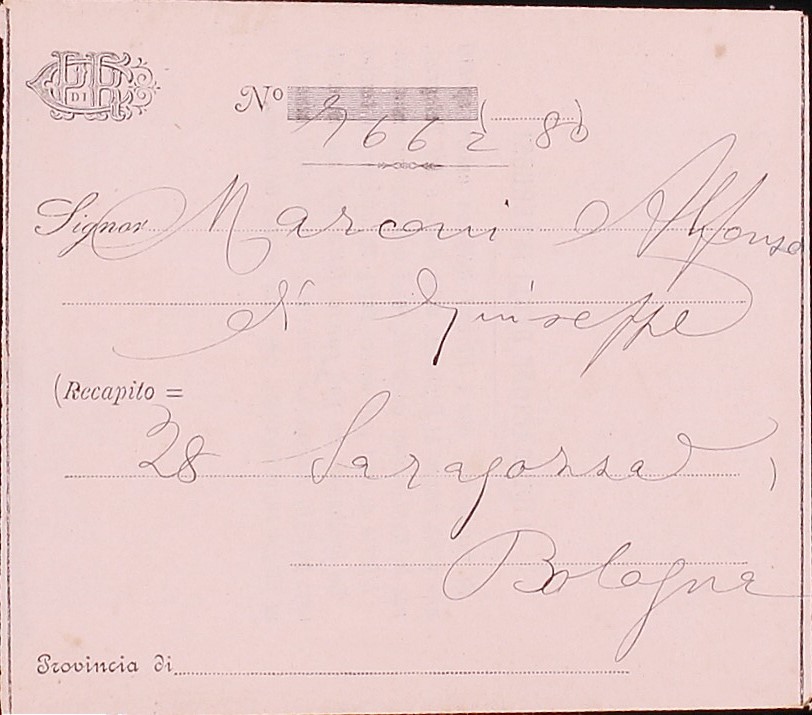 DI
Nº 7662 (80)
Signor Marconi Alfonso
di Giuseppe
(Recapito =
28 Saragozza)
Bologna
Provincia di